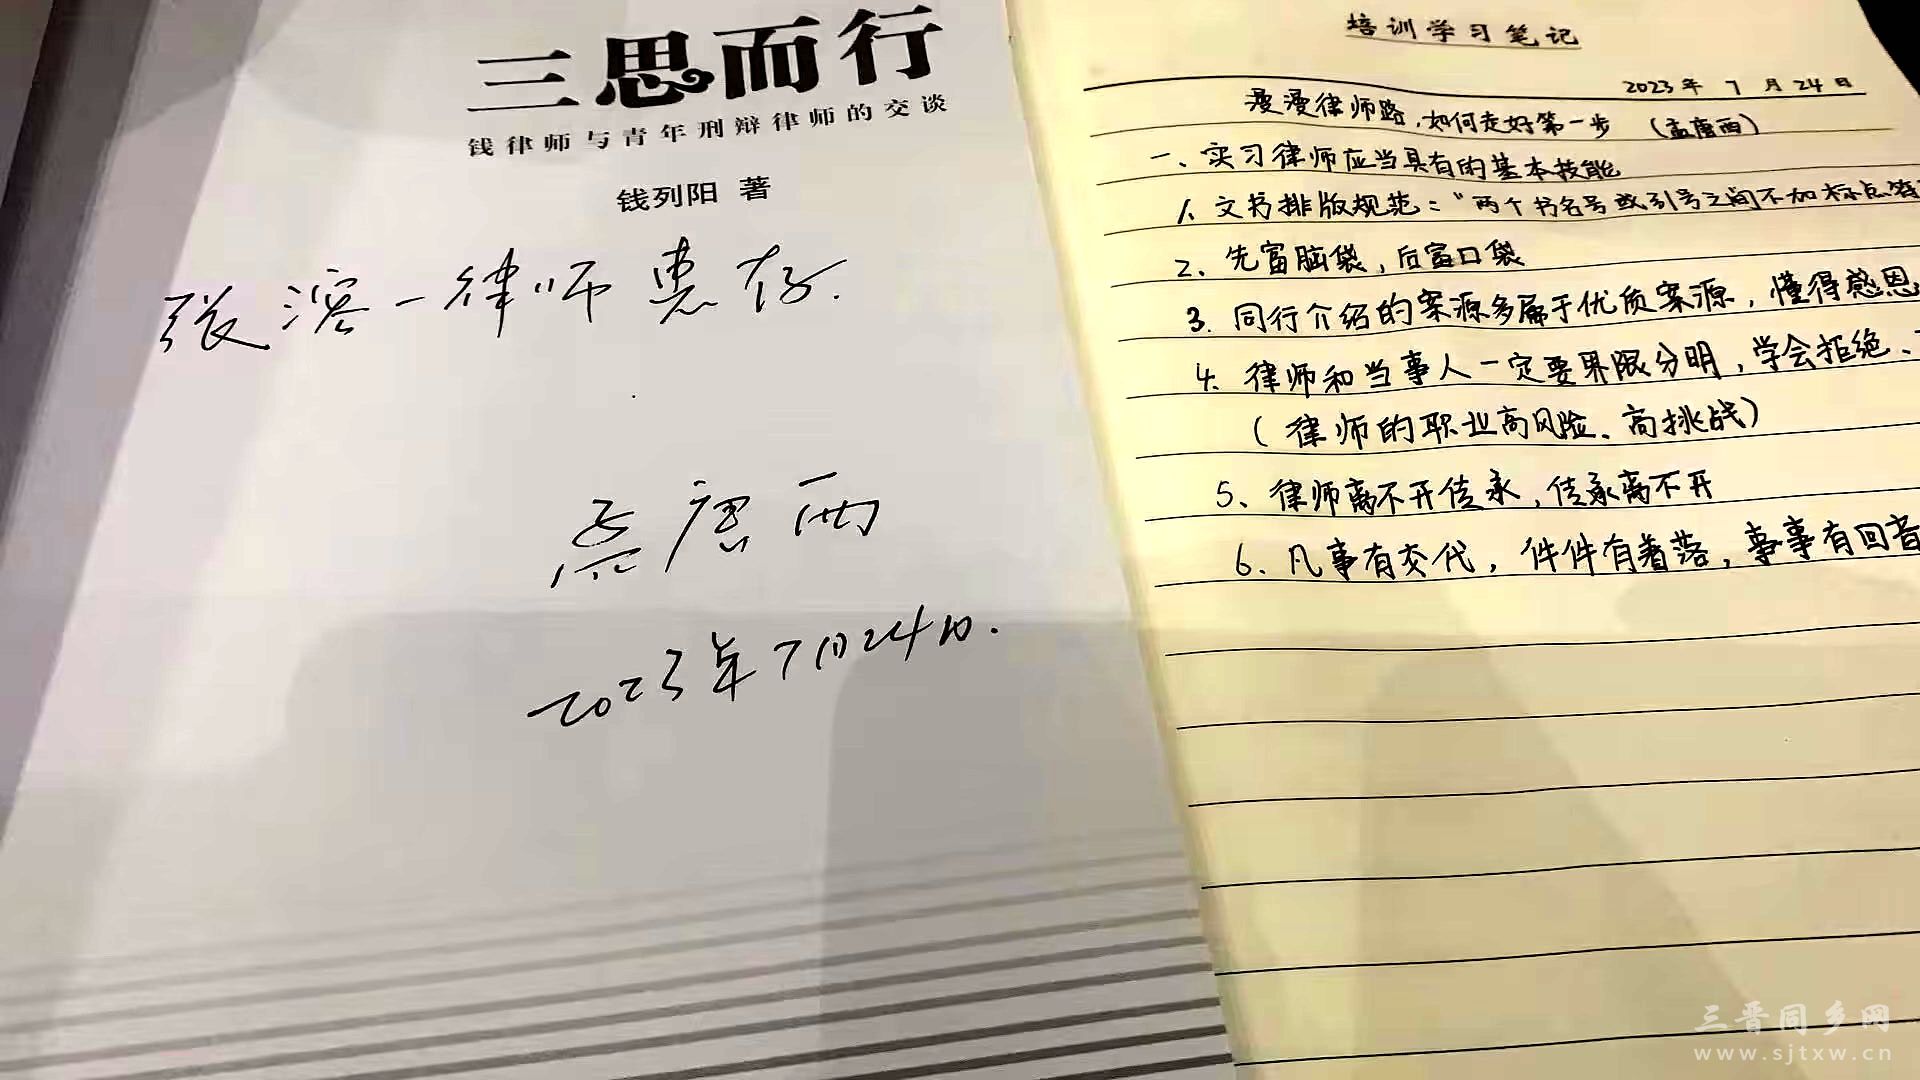 三思而行
钱律师与青年刑辩律师的交谈
钱列阳 著
张溶一律师惠存.
孟唐西
2023年7月24日.
培训学习笔记
2023年 7月24日
漫漫律师路,如何走好第一步 (孟唐西)
一、实习律师应当具有的基本技能
1、文书排版规范:"两个书名号或引号之间不加标点符
2、先富脑袋,后富口袋
3、同行介绍的案源多属于优质案源,懂得感恩
4、律师和当事人一定要界限分明,学会拒绝、
(律师的职业高风险、高挑战)
5、律师离不开传承,传承离不开
6、凡事有交代,件件有着落,事事有回音
三晋同乡网
www.sjtxw.cn